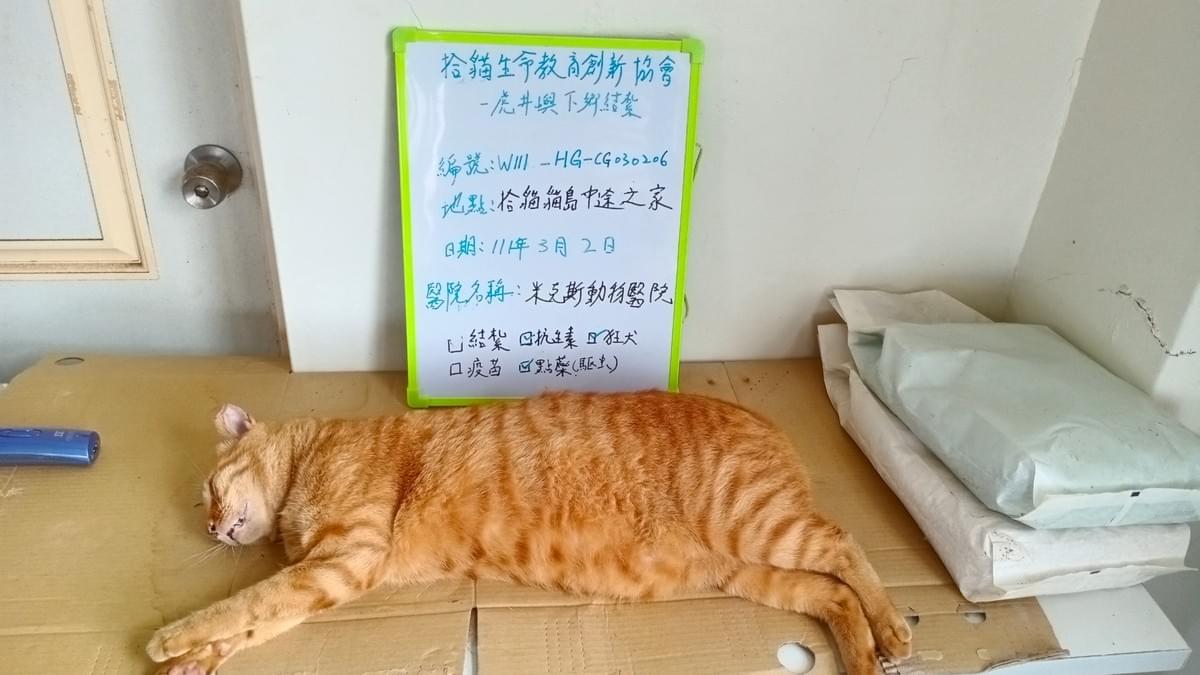 拾貓生命教育創新協會
-虎井嶼下鄉結紮
編號:W111-HG-CG030206
地點:拾貓貓島中途之家
日期:111年3月2日
醫院名稱:米克斯動物醫院
□結紮 ☑抗生素 ☑狂犬
□疫苗 ☑點藥(驅虫)